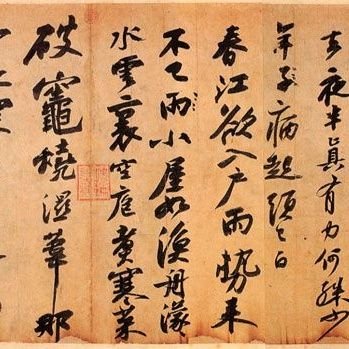 去夜半真有力何殊少
年子病起頭已白
春江欲入戶雨勢來
不已雨小屋如漁舟濛
水雲裏空庖煮寒菜
破竈燒濕葦那